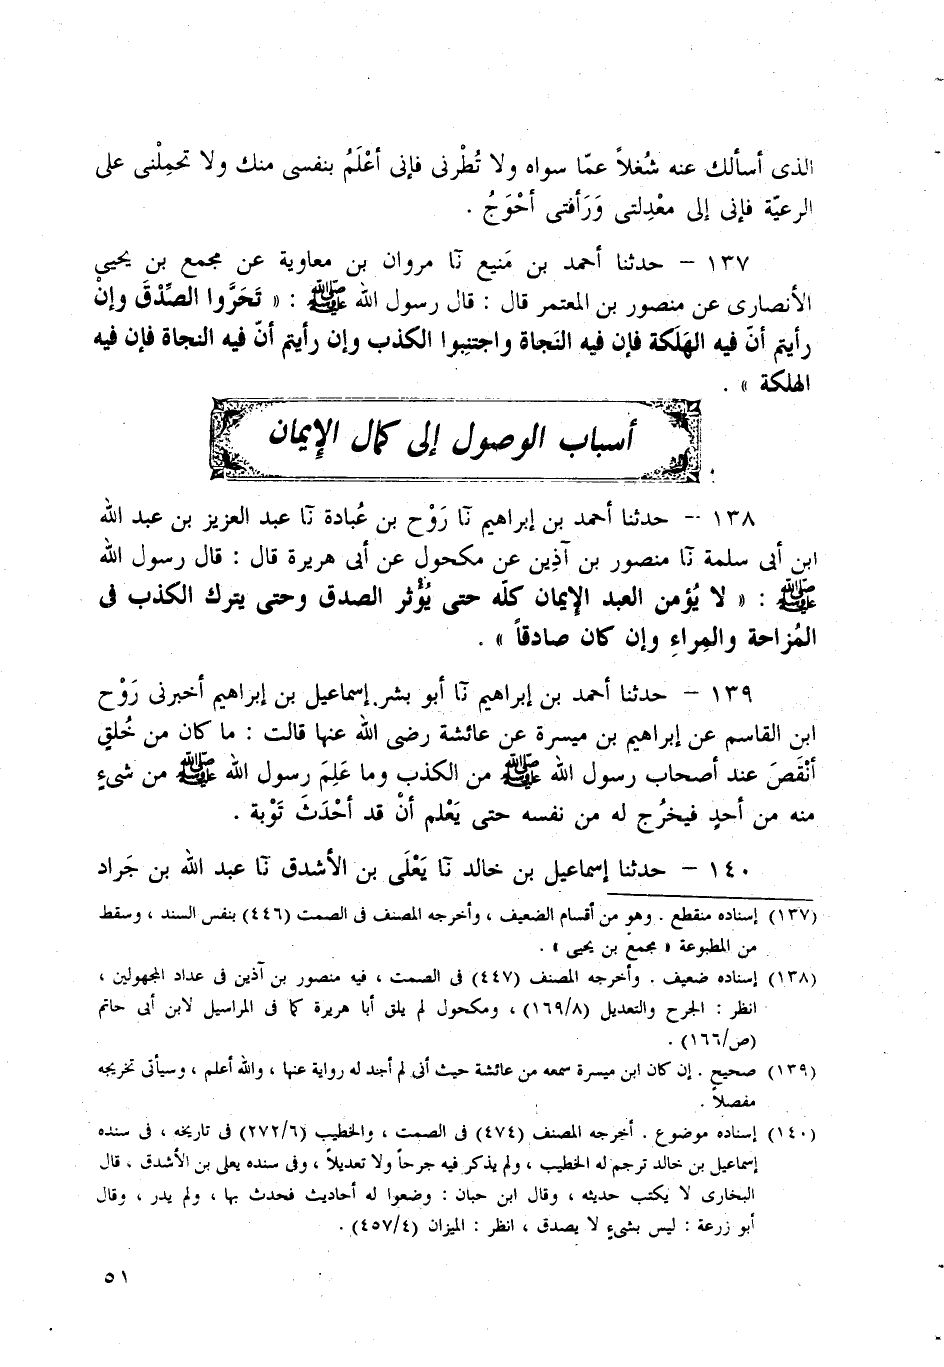 الذى أسألك عنه شُغلاً عمّا سواه ولا تُطْرنى فإنى أعْلَمُ بنفسى منك ولا تحمِلْنى على
الرعيّة فإنى إلى معْدِلتى وَرَأفتى أحْوَجُ .
١٣٧ – حدثنا أحمد بن مَنيع نَا مروان بن معاوية عن مجمع بن يحيى
الأنصارى عن منصور بن المعتمر قال : قال رسول الله ﷺ : « تَحَرَّوا الصِّدْقَ وإنْ
رأيتم أنّ فيه الهَلَكة فإن فيه النَجاة واجتنِبوا الكذب وإن رأيتم أنّ فيه النجاة فإن فيه
الهلكة » .
أسباب الوصول إلى كمال الإيمان
١٣٨ – حدثنا أحمد بن إبراهيم نَا رَوْح بن عُبادة نَا عبد العزيز بن عبد الله
ابن أبى سلمة نَا منصور بن آذِين عن مكحول عن أبى هريرة قال : قال رسول الله
ﷺ : « لا يُؤمن العبد الإيمان كلّه حتى يُؤْثر الصدق وحتى يترك الكذب فى
المُزاحة والمِراءِ وإن كان صادقاً » .
١٣٩ – حدثنا أحمد بن إبراهيم نَا أبو بشر إسماعيل بن إبراهيم أخبرنى رَوْح
ابن القاسم عن إبراهيم بن ميسرة عن عائشة رضى الله عنها قالت : ما كان من خُلقٍ
أنْقَصَ عند أصحاب رسول الله ﷺ من الكذب وما عَلِمَ رسول الله ﷺ من شىءٍ
منه من أحدٍ فيخرُج له من نفسه حتى يَعْلم أنْ قد أحْدَثَ تَوْبة .
١٤٠ – حدثنا إسماعيل بن خالد نَا يَعْلَى بن الأشدق نَا عبد الله بن جَراد
(١٣٧) إسناده منقطع . وهو من أقسام الضعيف ، وأخرجه المصنف فى الصمت (٤٤٦) بنفس السند ، وسقط
من المطبوعة « مجمع بن يحيى » .
(١٣٨) إسناده ضعيف . وأخرجه المصنف (٤٤٧) فى الصمت ، فيه منصور بن آذين فى عداد المجهولين ،
انظر : الجرح والتعديل (١٦٩/٨) ، ومكحول لم يلق أبا هريرة كما فى المراسيل لابن أبى حاتم
(ص/١٦٦) .
(١٣٩) صحيح . إن كان ابن ميسرة سمعه من عائشة حيث أنى لم أجد له رواية عنها ، والله أعلم ، وسيأتى تخريجه
مفصلاً .
(١٤٠) إسناده موضوع . أخرجه المصنف (٤٧٤) فى الصمت ، والخطيب (٢٧٢/٦) فى تاريخه ، فى سنده
إسماعيل بن خالد ترجم له الخطيب ، ولم يذكر فيه جرحاً ولا تعديلاً ، وفى سنده يعلى بن الأشدق . قال
البخارى لا يكتب حديثه ، وقال ابن حبان : وضعوا له أحاديث فحدث بها ، ولم يدر ، وقال
أبو زرعة : ليس بشىءٍ لا يصدق ، انظر : الميزان (٤٥٧/٤) .
٥١